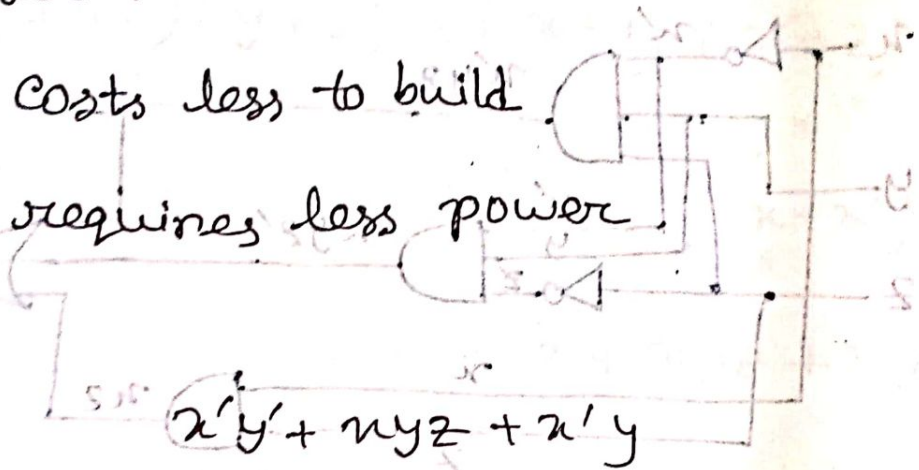 costs less to build
requires less power
x'y' + xyz + x'y